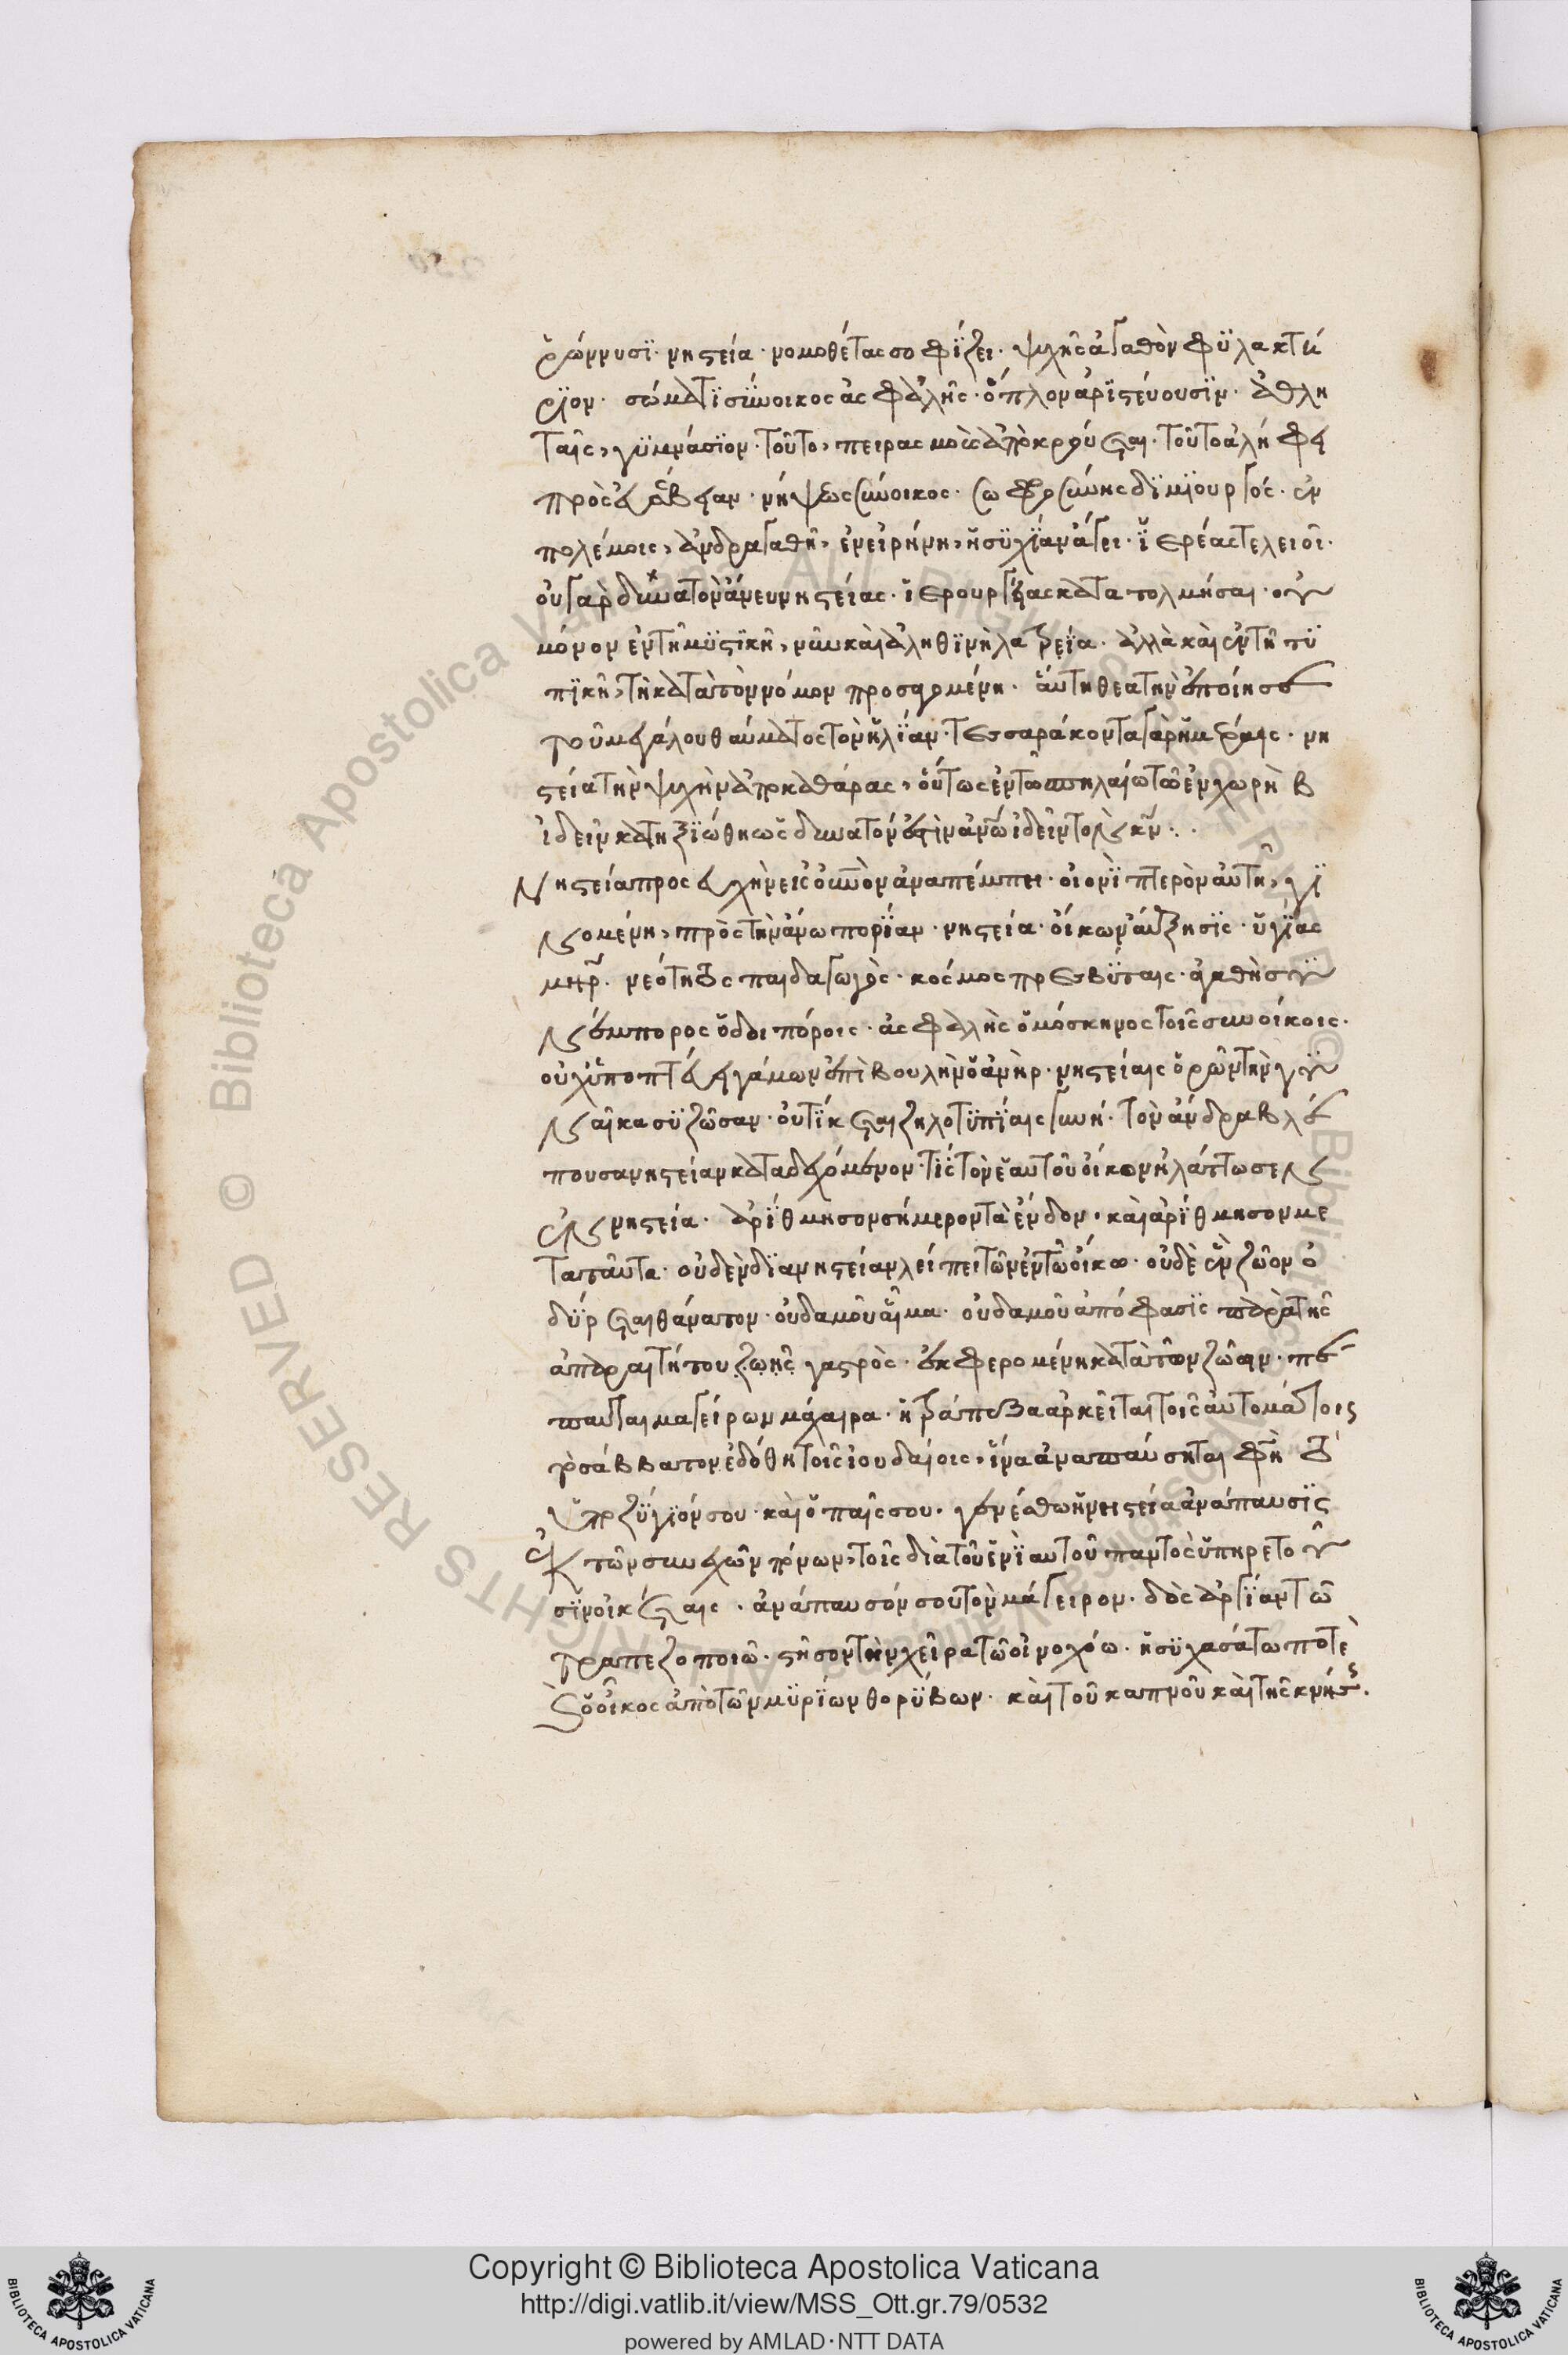 ῥώννυσϊ· νηστεία· νομοθέτας σοφίζει· ψυχῆς ἀγαθὸν φϋλακτή
ρϊον· σώματϊ σύνοικος ἀσφαλής· ὅπλον ἀρϊστεύουσϊν· ἀθλη
ταῖς, γϋμνάσϊον· τοῦτο, πειρασμοὺς ἀποκρούεται· τοῦτο ἀλήφει
πρὸς εὐσέβειαν· νήψεως σύνοικος· σωφροσύνης δϊμϊουργός· ἐν
πολέμοις, ἀνδραγαθῆ, ἐν εἰρήνη, ἡσϋχΐαν ἄγει· ἱερέας τελειοῖ·
οὐ γὰρ δυνατὸν ἄνευ νηστείας· ἱερουργίας κατατολμῆσαι· οὐ
μόνον ἐν τῆ μϋστϊκῆ, νῦν καὶ ἀληθϊνὴ λατρεία· ἀλλὰ καὶ ἐν τῆ τϋ
πϊκῆ, τῆ κατὰ τὸν νόμον προσαγομένη· αὕτη θεατὴν ἐποίησε
τοῦ μεγάλου θαύματος τὸν ἡλΐαν· τεσσαράκοντα γὰρ ἡμέραις· νη
στεία τὴν ψυχὴν ἀποκαθάρας, οὕτως ἐν τῶ σπηλαίω τῶ ἐν χωρὴβ
ἰδεῖν κατηξϊώθη ὡς δυνατόν ἐστὶν ἀνθρώπῳ ἰδεῖν τὸν κύριον··
Νηστεία προσευχὴν εἰς οὐρανὸν ἀναπέμπει· οἱονϊ πτερὸν αὐτῆ, γϊ
νομένη, πρὸς τὴν ἄνω πορΐαν· νηστεία· οἴκων αὔξησϊς· ὑγΐας
μήτηρ· νεότητος παιδαγωγὸς· κόσμος πρεσβύταις· ἀγαθὴ σϋ
νέμπορος ὁδοιπόροις· ἀσφαλὴς ὁμόσκηνος τοῖς συνοίκοις·
οὐχ ὑποπτεύει γάμων ἐπϊβουλὴν ὁ ἀνὴρ· νηστείαις ὁρῶν τὴν γϋ
ναῖκα σϋζῶσαν· οὐ τΐκεται ζηλοτϋπΐαις γυνή· τὸν ἄνδρα βλέ
πουσα νηστείαν καταδεχόμενον· τίς τὸν ἑαυτοῦ οἶκον ἠλάττωσεν
ἐν νηστεία· ἀρΐθμησον σήμερον τὰ ἔνδον· καὶ ἀρΐθμησον με
τὰ ταῦτα· οὐδὲν δϊα νηστείαν λείπει τῶν ἐν τῶ οἴκω· οὐδὲ ἓν ζῶον ὀ
δΰρεται θάνατον· οὐδαμοῦ αἷμα· οὐδαμοῦ ἀπόφασϊς παρὰ τῆς
ἀπαραιτήτου ζωῆς γαστρὸς· ἐκφερομένη κατὰ τῶν ζώων· πέ
παυται μαγείρων μάχαιρα· ἡ τράπεζα ἀρκεῖται τοῖς αὐτομάτοις
τὸ σάββατον ἐδόθη τοῖς ἰουδαίοις, ἵνα ἀναπαύσηται φησὶ τὸ
ὑποζΰγϊόν σου· καὶ ὁ παῖς σου· γενέσθω ἡ νηστεία ἀνάπαυσϊς
ἐκ τῶν συνεχῶν πόνων, τοῖς διὰ τοῦ ἐνϊαυτοῦ παντὸς ὑπηρετοῦ
σϊν οἰκέταις· ἀνάπαυσόν σου τὸν μάγειρον· δὸς ἀργΐαν τῶ
τραπεζοποιῶ· στῆσον τὴν χεῖρα τῶ οἰνοχόω· ἡσϋχασάτω ποτὲ
ὁ οἶκος ἀπὸ τῶν μϋρΐων θορΰβων· καὶ τοῦ καπνοῦ καὶ τῆς κνίσης·
Copyright © Biblioteca Apostolica Vaticana
http://digi.vatlib.it/view/MSS_Ott.gr.79/0532
powered by AMLAD·NTT DATA